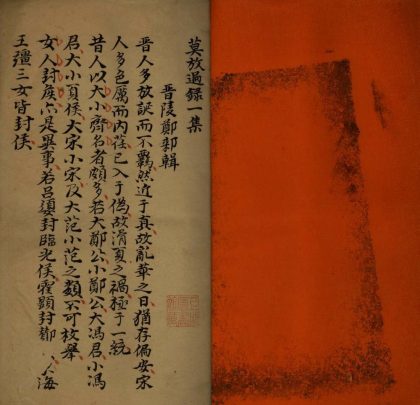 莫放過錄一集
晉陵鄭輯
晉人多放誕而不羈然近于真故亂華之日猶存偏安宋
人多色厲而内荏已入于偽故滑夏之禍極于一統
昔人以大小齊名者頗多若大鄭公小鄭公大馮君小馮
君大小夏侯大宋小宋及大范小范之類不可枚舉
女人封侯亦是異事若吕嬃封臨光侯霍顯封海
王彊三女皆封侯